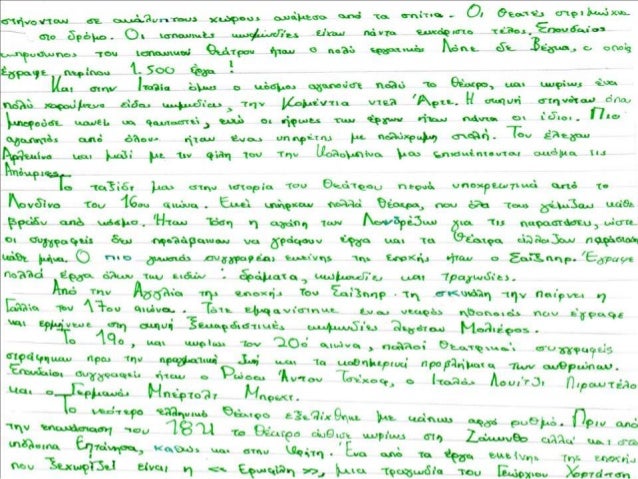 στήνονταν σε ακάλυπτους χώρους ανάμεσα από τα σπίτια. Οι θεατές στριμώχνο
στο δρόμο. Οι ισπανικές κωμωδίες είχαν πάντα ευχάριστο τέλος. Σπουδαίος
εκπρόσωπος του ισπανικού θεάτρου ήταν ο πολύ εργατικός Λόπε δε Βέγκα, ο οποίος
έγραψε περίπου 1.500 έργα!
Και στην Ιταλία όμως ο κόσμος αγαπούσε πολύ το θέατρο, και κυρίως ένα
πολύ χαρούμενο είδος κωμωδίας, την Κομέντια ντελ 'Αρτε. Η σκηνή στηνόταν όπου
μπορούσε κανείς να φανταστεί, ενώ οι ήρωες των έργων ήταν πάντα οι ίδιοι. Πιο
αγαπητός από όλους ήταν ένας υπηρέτης με πολύχρωμη στολή. Τον έλεγαν
Αρλεκίνο και μαζί με τη φίλη του την Κολομπίνα μας επισκέπτονται ακόμα τις
Απόκριες.
Το ταξίδι μας στην ιστορία του θεάτρου περνά υποχρεωτικά από το
Λονδίνο του 16ου αιώνα. Εκεί υπήρχαν πολλά θέατρα, που όλα τους γέμιζαν κάθε
βράδυ από κόσμο. Ήταν τόση η αγάπη των Λονδρέζων για τις παραστάσεις, ώστε
οι συγγραφείς δεν προλάβαιναν να γράφουν έργα και τα θέατρα άλλαζαν παράσταση
κάθε μήνα. Ο πιο γνωστός συγγραφέας εκείνης της εποχής ήταν ο Σαίξπηρ. Έγραψε
πολλά έργα όλων των ειδών: δράματα, κωμωδίες και τραγωδίες.
Από την Αγγλία της εποχής του Σαίξπηρ τη σκυτάλη την παίρνει η
Γαλλία του 17ου αιώνα. Τότε εμφανίστηκε ένας νεαρός ηθοποιός που έγραφε
και ερμήνευε στη σκηνή ξεκαρδιστικές κωμωδίες λεγόταν Μολιέρος.
Το 19ο, και κυρίως τον 20ό αιώνα, πολλοί θεατρικοί συγγραφείς
στράφηκαν προς την πραγματική ζωή και τα καθημερινά προβλήματα των ανθρώπων.
Σπουδαίοι συγγραφείς ήταν ο Ρώσος Άντον Τσέχοφ, ο Ιταλός Λουίτζι Πιραντέλο
και ο Γερμανός Μπέρτολτ Μπρεχτ.
Το νεότερο ελληνικό θέατρο εξελίχθηκε με κάπως αργό ρυθμό. Πριν από
την επανάσταση του 1821 το θέατρο άνθισε κυρίως στη Ζάκυνθο αλλά και στα
υπόλοιπα Επτάνησα, καθώς και στην Κρήτη. Ένα από τα έργα εκείνης της εποχής
που ξεχωρίζει είναι η << Ερωφίλη >>, μια τραγωδία του Γεώργιου Χορτάτση